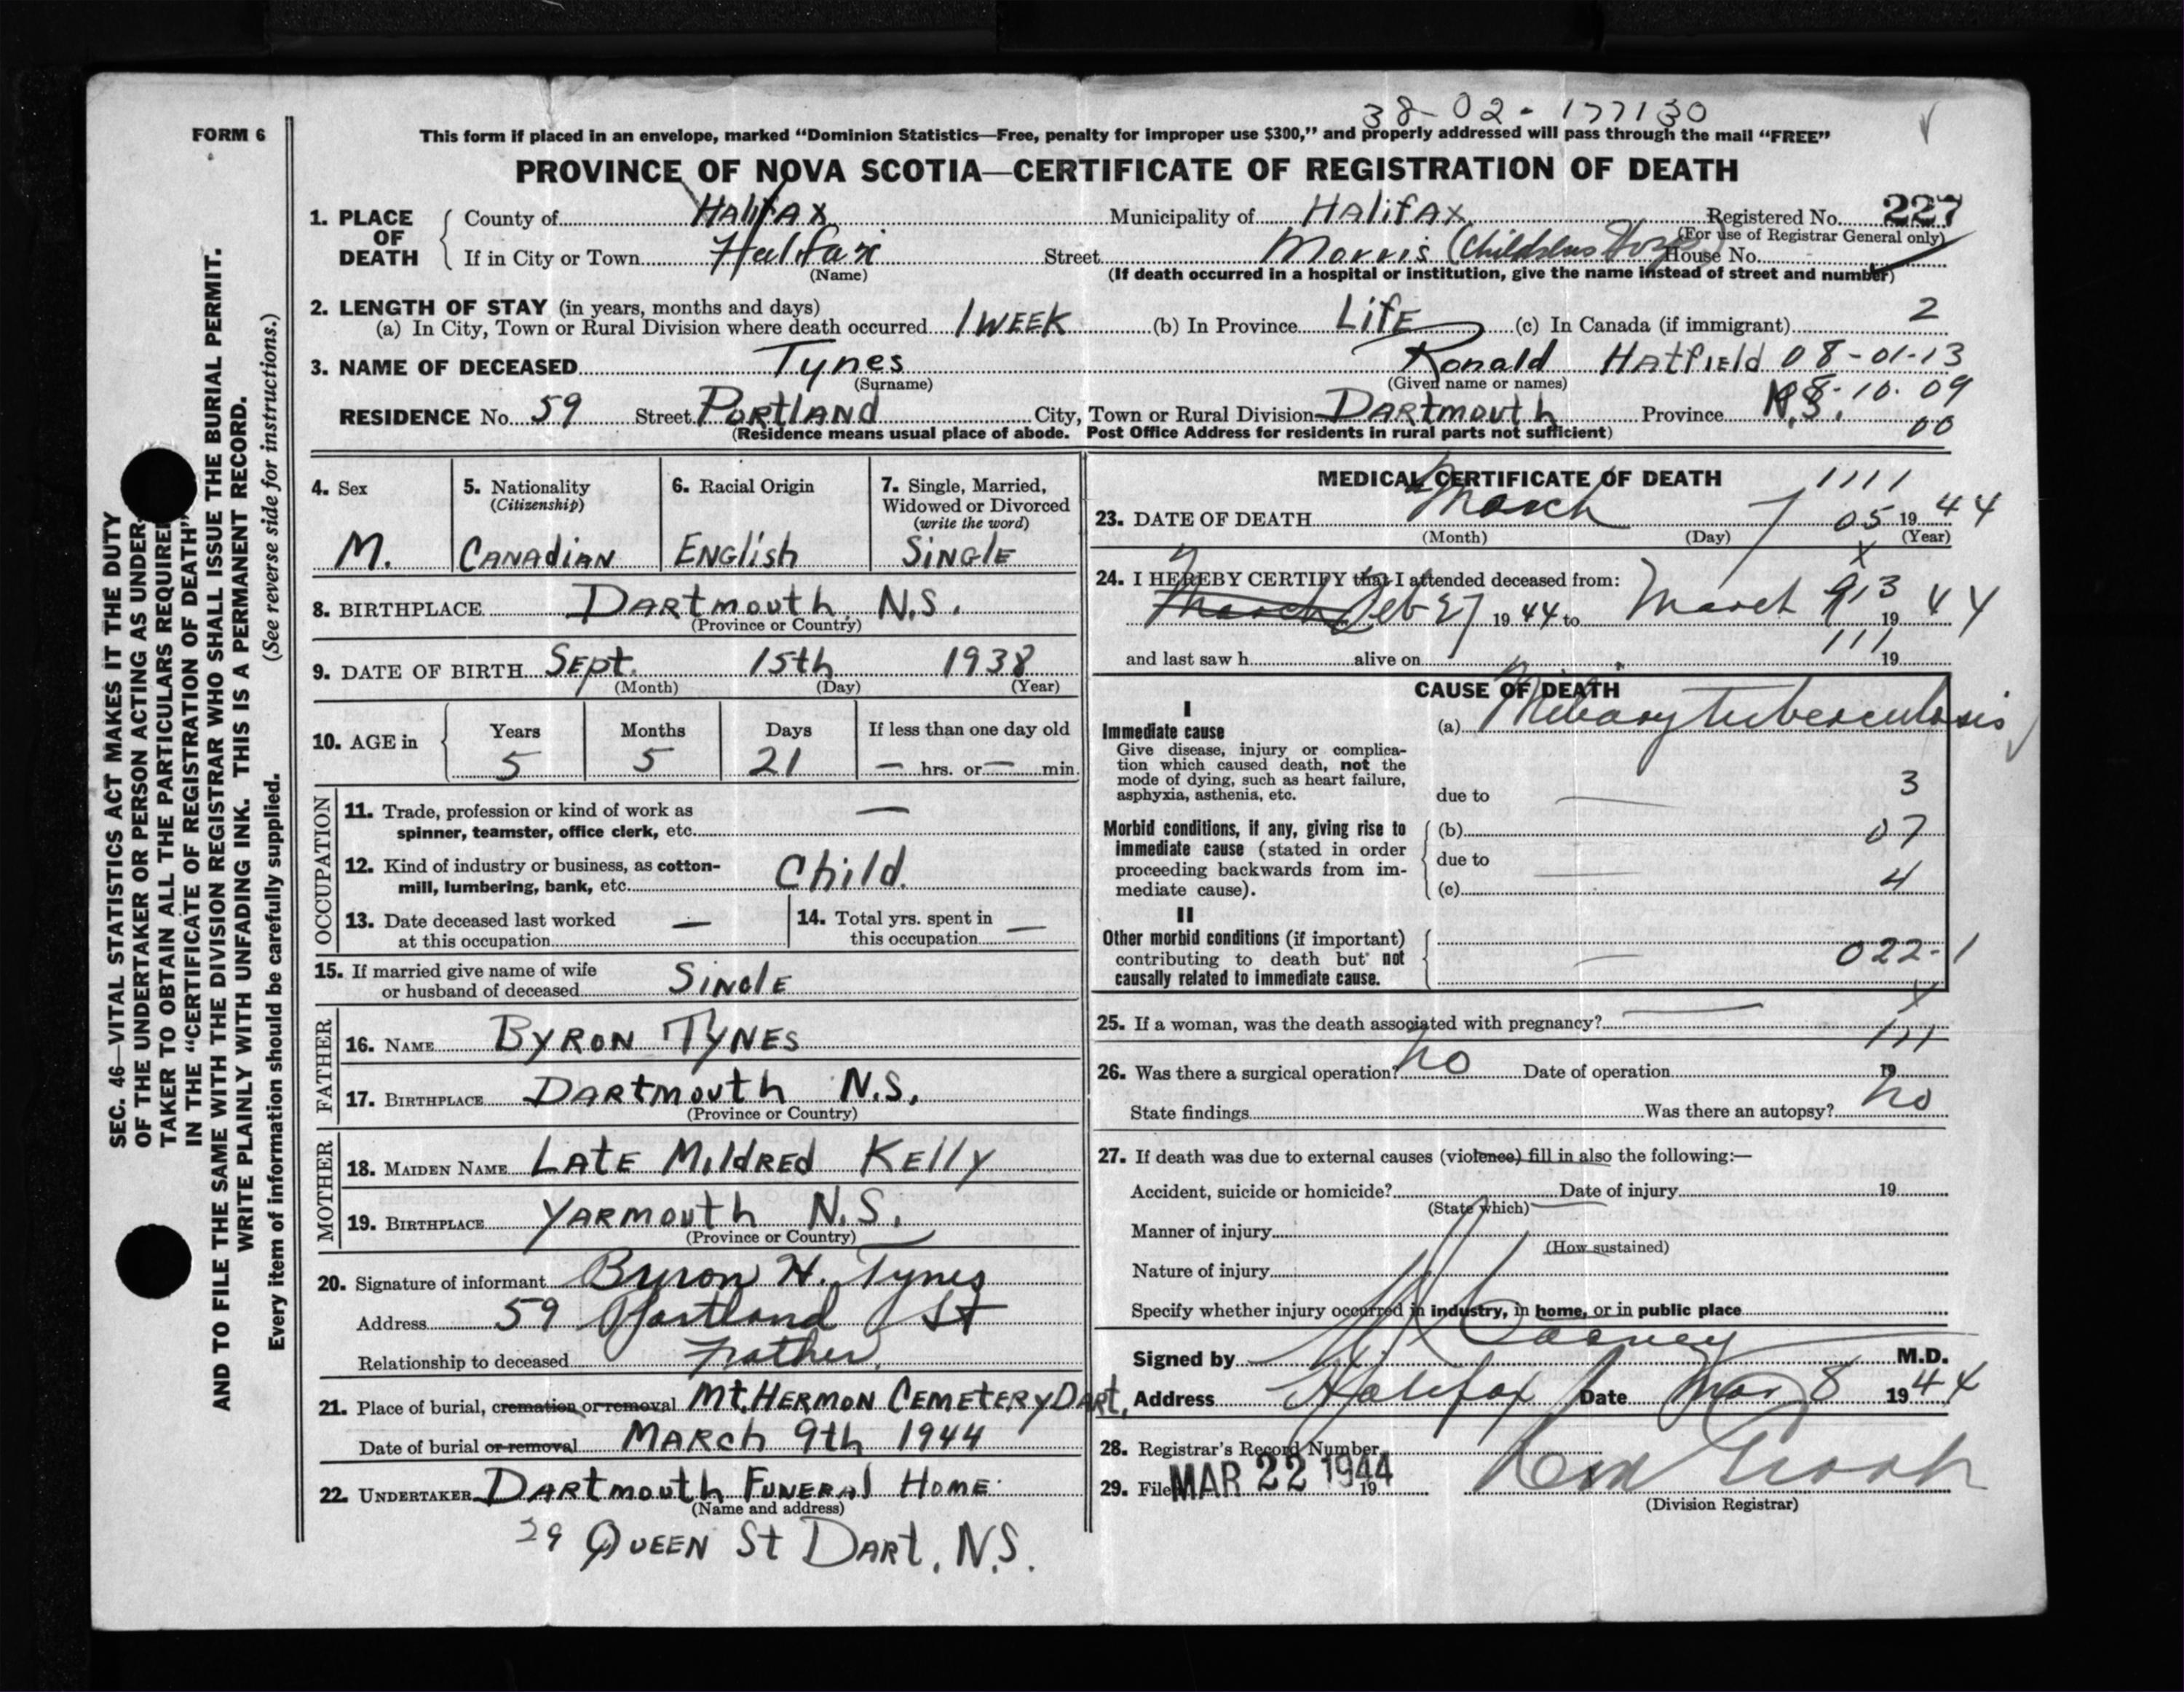 38-02-177130
FORM 6
This form if placed in an envelope, marked "Dominion Statistics—Free, penalty for improper use $300," and properly addressed will pass through the mail "FREE"
PROVINCE OF NOVA SCOTIA—CERTIFICATE OF REGISTRATION OF DEATH
1. PLACE OF DEATH County of Halifax Municipality of Halifax Registered No. 227
(For use of Registrar General only)
If in City or Town Halifax Street Morris (Childrens Hosp.) House No.
(Name) (If death occurred in a hospital or institution, give the name instead of street and number)
2. LENGTH OF STAY (in years, months and days)
(a) In City, Town or Rural Division where death occurred 1 WEEK (b) In Province LifE (c) In Canada (if immigrant) 2
3. NAME OF DECEASED Tynes Ronald Hatfield 08-01-13
(Surname) (Given name or names)
RESIDENCE No. 59 Street Portland City, Town or Rural Division Dartmouth Province N.S. 08-10.09
(Residence means usual place of abode. Post Office Address for residents in rural parts not sufficient) 00
4. Sex M.
5. Nationality (Citizenship) Canadian
6. Racial Origin English
7. Single, Married, Widowed or Divorced (write the word) Single
8. BIRTHPLACE Dartmouth, N.S.
(Province or Country)
9. DATE OF BIRTH Sept. 15th 1938
(Month) (Day) (Year)
10. AGE in Years 5 Months 5 Days 21 If less than one day old — hrs. or — min.
OCCUPATION
11. Trade, profession or kind of work as spinner, teamster, office clerk, etc. —
12. Kind of industry or business, as cotton-mill, lumbering, bank, etc. Child.
13. Date deceased last worked at this occupation —
14. Total yrs. spent in this occupation —
15. If married give name of wife or husband of deceased Single
FATHER
16. NAME Byron Tynes
17. BIRTHPLACE Dartmouth N.S.
(Province or Country)
MOTHER
18. MAIDEN NAME Late Mildred Kelly
19. BIRTHPLACE Yarmouth N.S.
(Province or Country)
20. Signature of informant Byron H. Tynes
Address 59 Portland St
Relationship to deceased Father.
21. Place of burial, cremation or removal Mt. Hermon Cemetery Dart.
Date of burial or removal March 9th 1944
22. UNDERTAKER Dartmouth Funeral Home
(Name and address)
29 Queen St Dart. N.S.
MEDICAL CERTIFICATE OF DEATH
1111
23. DATE OF DEATH March 7 05 1944
(Month) (Day) (Year)
x
24. I HEREBY CERTIFY that I attended deceased from:
March Feb 27 1944 to March 913 1944
111
and last saw h alive on 19
CAUSE OF DEATH
I
Immediate cause (a) Miliary tuberculosis
Give disease, injury or complication which caused death, not the mode of dying, such as heart failure, asphyxia, asthenia, etc.
due to 3
Morbid conditions, if any, giving rise to immediate cause (stated in order proceeding backwards from immediate cause).
(b) 07
due to
(c) 4
II
Other morbid conditions (if important) contributing to death but not causally related to immediate cause.
022-1
x
25. If a woman, was the death associated with pregnancy?
111
26. Was there a surgical operation? no Date of operation 19
State findings Was there an autopsy? no
27. If death was due to external causes (violence) fill in also the following:—
Accident, suicide or homicide? Date of injury 19
(State which)
Manner of injury
(How sustained)
Nature of injury
Specify whether injury occurred in industry, in home, or in public place
Signed by M.D.
Address Halifax Date Mar 8 1944
28. Registrar's Record Number
29. Filed MAR 22 1944 19
(Division Registrar)
SEC. 46—VITAL STATISTICS ACT MAKES IT THE DUTY
OF THE UNDERTAKER OR PERSON ACTING AS UNDER
TAKER TO OBTAIN ALL THE PARTICULARS REQUIRE
IN THE "CERTIFICATE OF REGISTRATION OF DEATH"
AND TO FILE THE SAME WITH THE DIVISION REGISTRAR WHO SHALL ISSUE THE BURIAL PERMIT.
WRITE PLAINLY WITH UNFADING INK. THIS IS A PERMANENT RECORD.
Every item of information should be carefully supplied. (See reverse side for instructions.)